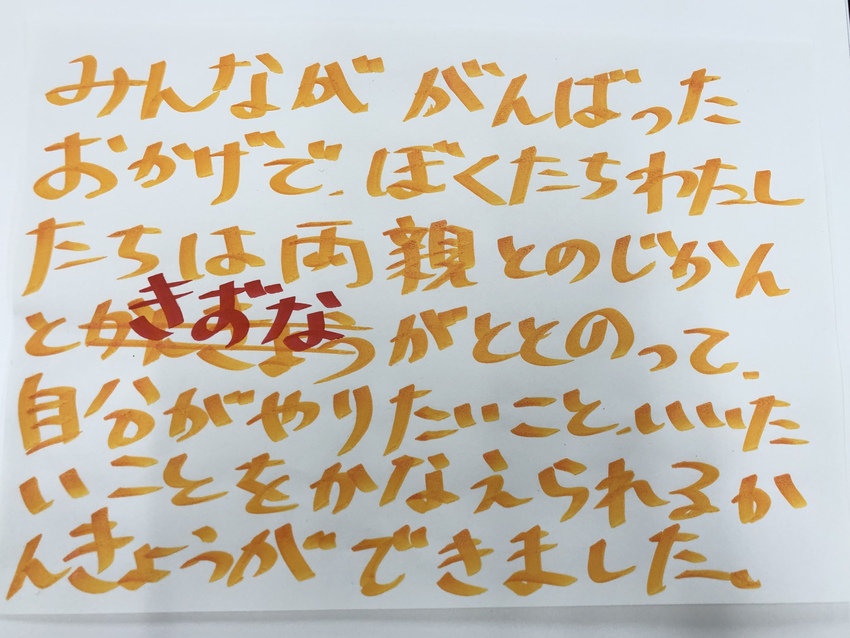 みんなが がんばった
おかげで、ぼくたちわたし
たちは両親とのじかん
とかんきょうがととのって、
きずな
自分がやりたいこと、いいた
いことをかなえられるか
んきょうができました。